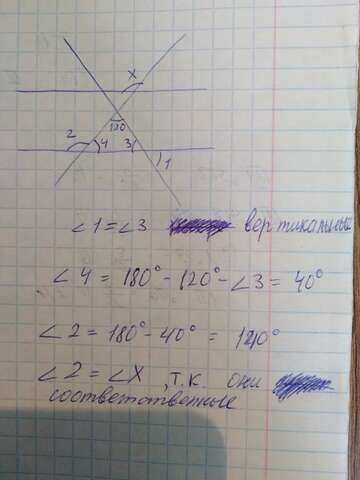 x
120
2 4 3 1
∠1 = ∠3 вертикальные
∠4 = 180° - 120° - ∠3 = 40°
∠2 = 180° - 40° = 140°
∠2 = ∠X , т.к. они
соответственные